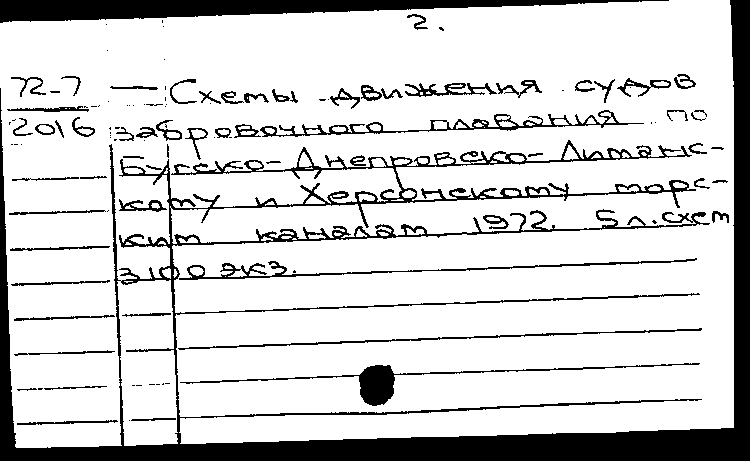 2.
72-7 — Схемы движения судов
2016 забровочного плавания по
Бугско-Днепровско-Лиманс-
кому и Херсонскому морс-
ким каналам. 1972. 5 л. схем
3100 экз.